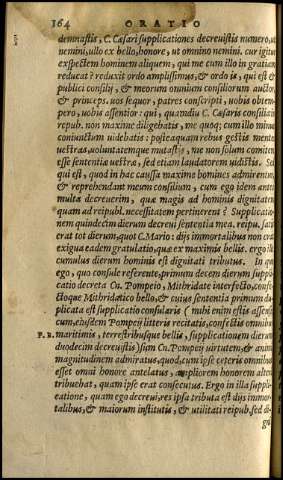 164 ORATIO
demnastis, C. Cæsari supplicationes decreuistis numero, ut
nemini, ullo ex bello, honore, ut omnino nemini. cur igitur
exspectem hominem aliquem, qui me cum illo in gratiam
reducat? reduxit ordo amplissimus, & ordo is, qui est &
publici consilij, & meorum omnium consiliorum auctor,
& princeps. uos sequor, patres conscripti, uobis obtem-
pero, uobis assentior: qui, quamdiu C. Cæsaris consilia in
repub. non maxime diligebatis, me quoq; cum illo minus
coniunctum uidebatis: posteaquam rebus gestis mentes
uestras, uoluntatemque mutastis, me non solum comitem
esse sententiæ uestræ, sed etiam laudatorem uidistis. Sed
qui est, quod in hac caussa maxime homines admirentur,
& reprehendant meum consilium, cum ego idem antea
multa decreuerim, quæ magis ad hominis dignitatem
quam ad reipub. necessitatem pertinerent? Supplicatio-
nem quindecim dierum decreui sententia mea. reipu. satis
erat tot dierum, quot C. Mario: dijs immortalibus non erat
exigua eadem gratulatio, quæ ex maximis bellis. ergo ille
cumulus dierum hominis est dignitati tributus. In quo
ego, quo consule referente, primum decem dierum suppli-
catio decreta Cn. Pompeio, Mithridate interfecto, confe-
ctoque Mithridatico bello, & cuius sententia primum du-
plicata est supplicatio consularis (mihi enim estis assensi,
cum, eiusdem Pompeij litteris recitatis, confectis omnibus
P. R. maritimis, terrestribusque bellis, supplicationem dierum
duodecim decreuistis) sum Cn. Pompeij uirtutem, & animi
magnitudinem admiratus, quod, cum ipse ceteris omnibus
esset omni honore antelatus, ampliorem honorem alteri
tribuebat, quam ipse erat consecutus. Ergo in illa suppli-
catione, quam ego decreui, res ipsa tributa est dijs immor-
talibus, & maiorum institutis, & utilitati reipub. sed di-
gni